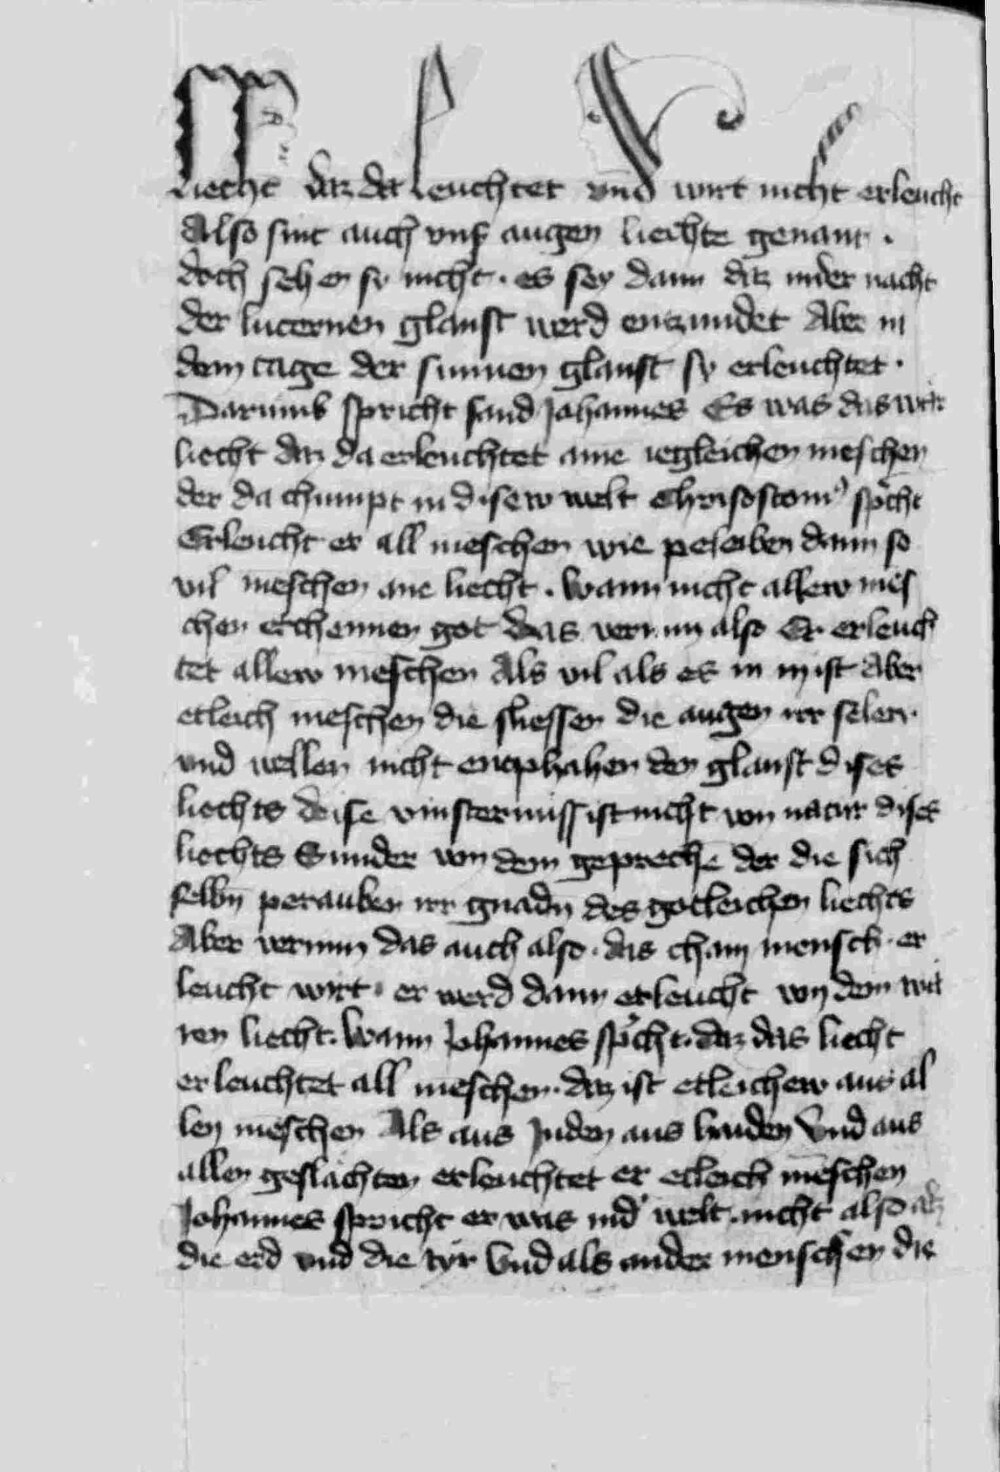 Liecht daz da leuchtet vnd wirt nicht erleucht
Also sint auch vnß augen liechte genant .
doch sehen sy nicht . es sey dann daz in der nacht
der lucernen glanst werd entzundet Aber in
dem tage der sunnen glanst sy erleuchtet .
Darumb spricht sand Johannes Es was das war
liecht daz da erleuchtet aine iegleichen meschen
der da chumpt in disew welt Chrisostomꝰ spͥcht
Erleucht er all meschen wie peleiben dann so
vil meschen ane liecht . wann nicht allew mēs
chen erchennen got das vernim also Er erleuch
tet allew meschen Als vil als es in im ist Aber
etleich meschen die sliessen die augen irr selen .
vnd wellen nicht enphahen den glanst dises
liechts dise vinsternuss ist nicht von natur dises
liechts Sunder von dem geprechē der die sich
selbn̄ perauben irr gnadn̄ des gotleichen liechts
Aber vernim das auch also . das chain mensch . er
leucht wirt . er werd dann erleucht von dem wa
ren liecht . wann Johannes spͥcht . daz das liecht
erleuchtet all meschen . daz ist etleichew aus al
len meschen Als aus Juden aus haiden Vnd aus
allen geslächten erleuchtet er etleich meschen
Johannes spricht er was in dͥ welt . nicht also als
die erd vnd die tyr Vnd als ander menschen die